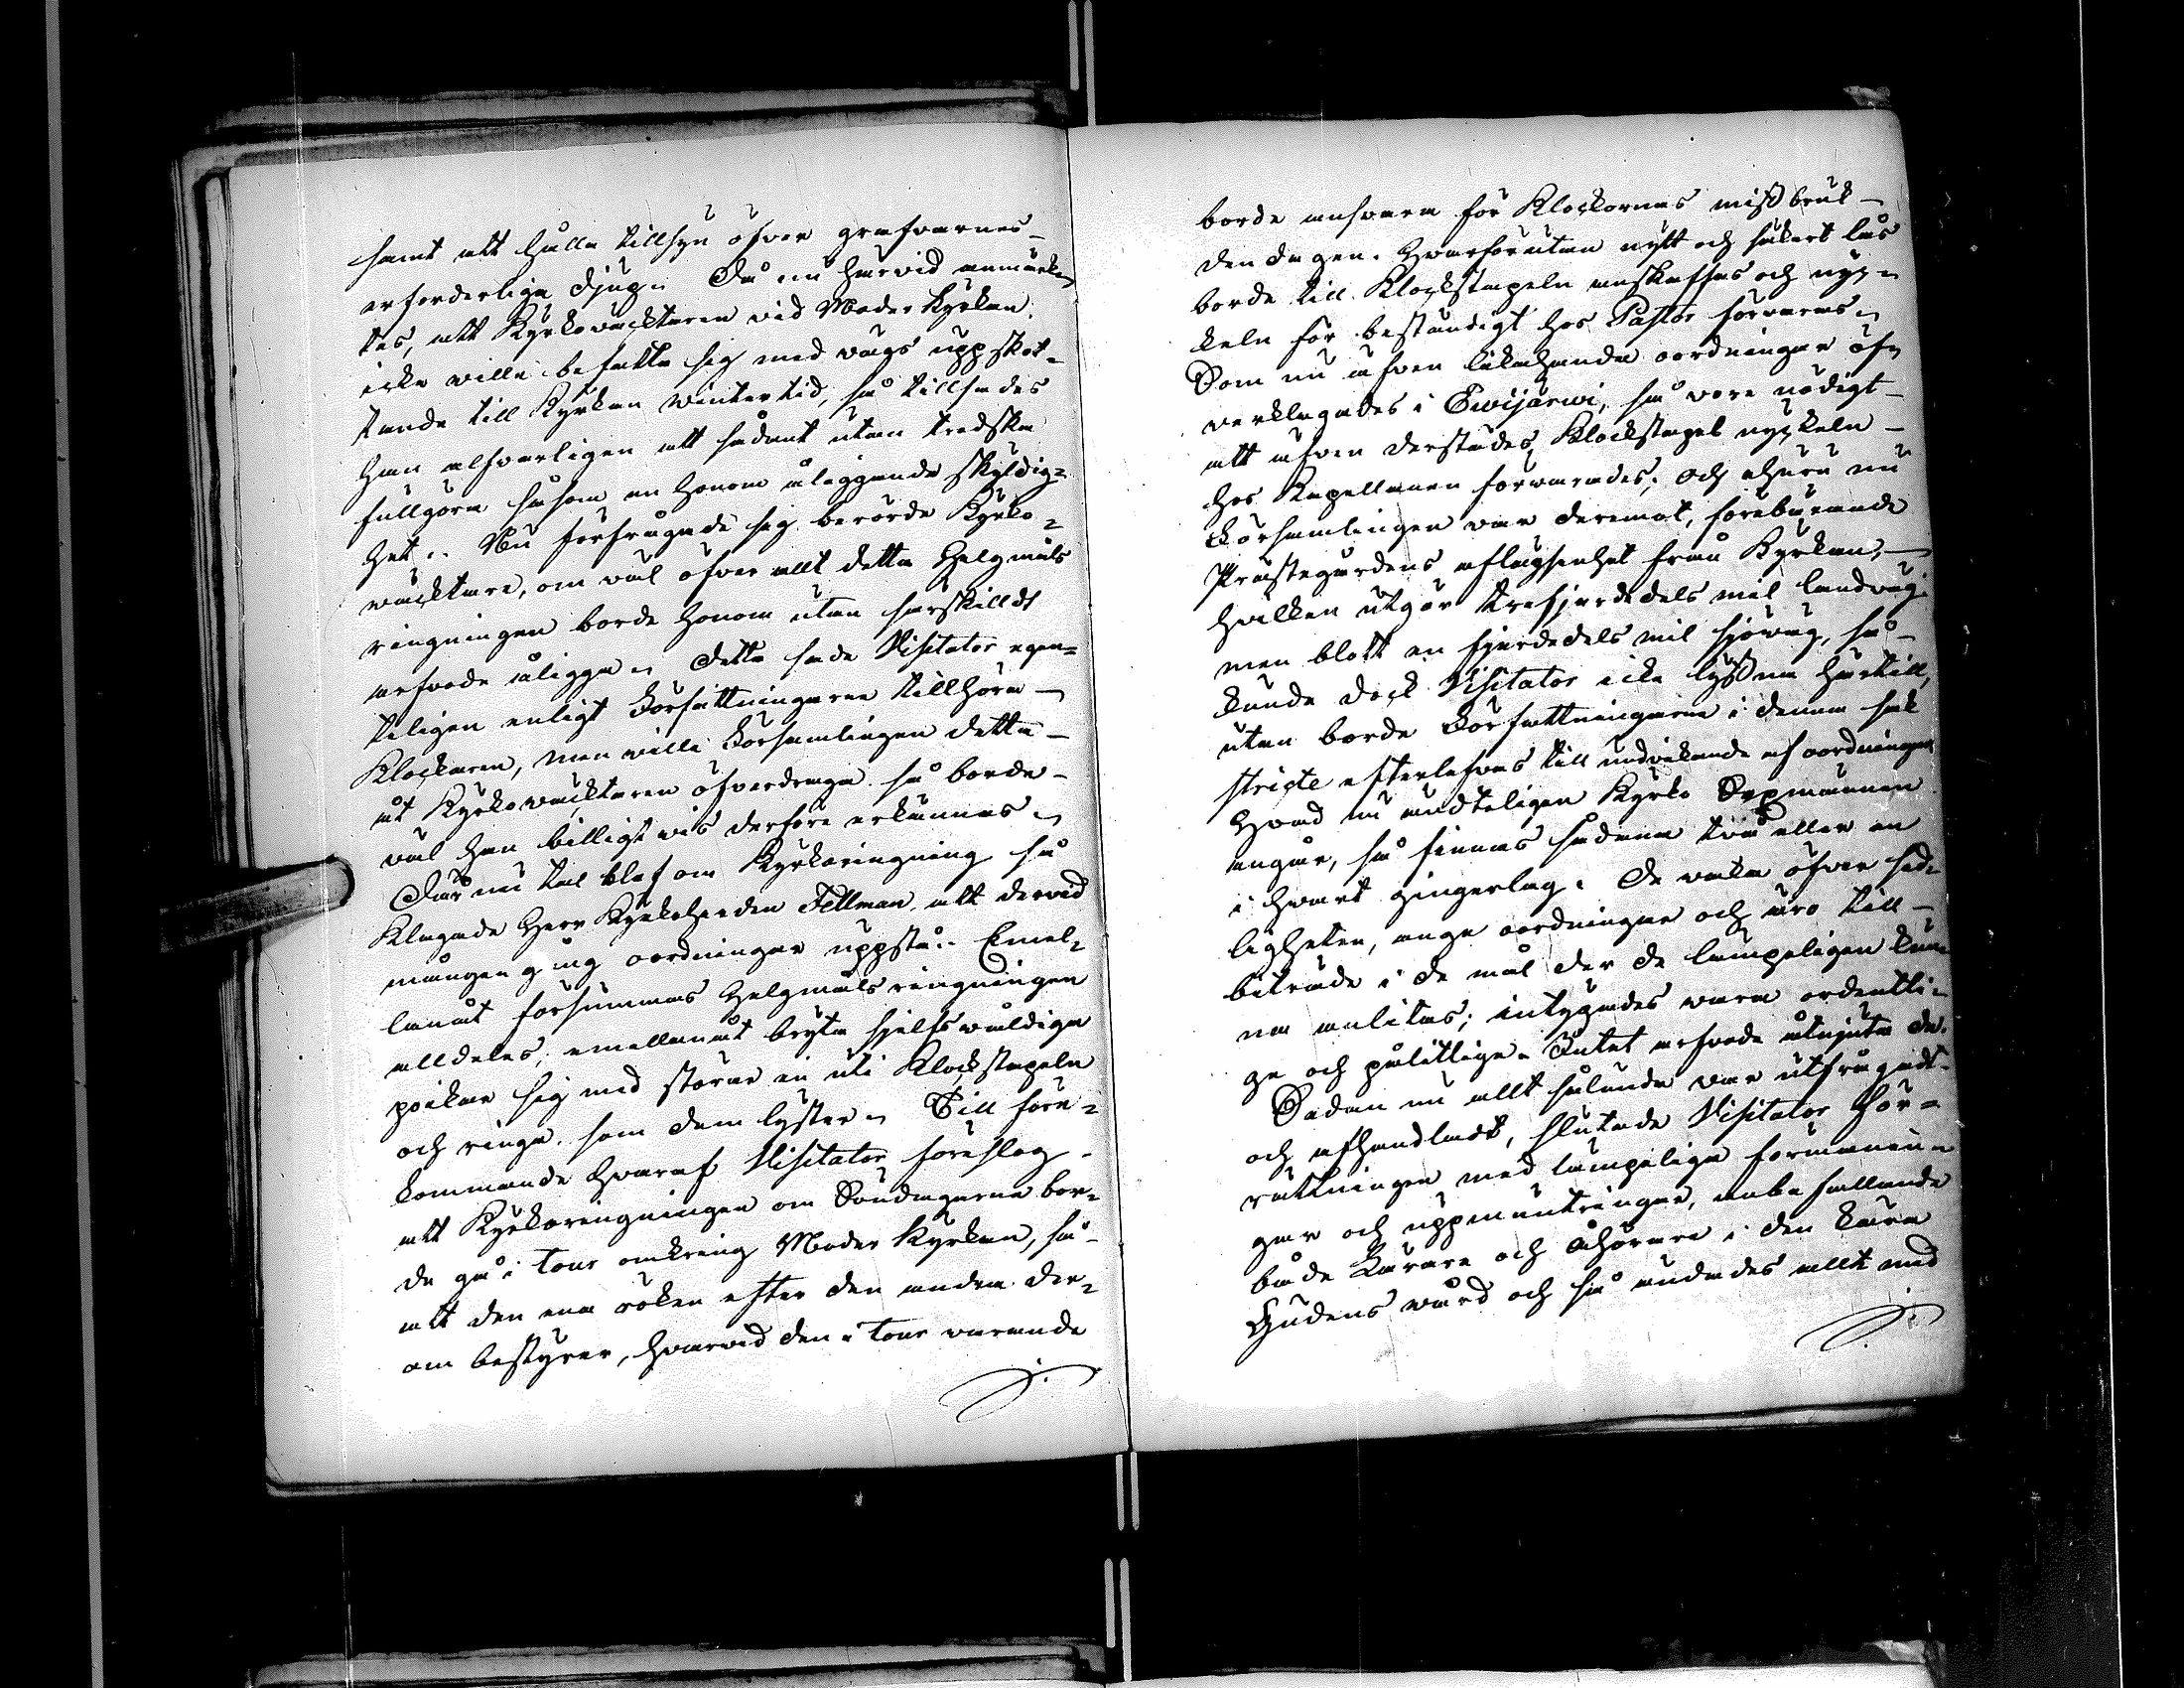 samt att hålla tillsyn öfver grafvarnes
erforderliga djup. Då nu härvid anmärk-
tes, att Kyrkowäcktaren vid Moder Kyrkan
icke wille befatta sig med vägs uppskot-
tande till Kyrkan wintertid, så tillsades
han alfvarligen att sådant utan tredska
fullgöra såsom en honom åliggande skyldig-
het. Nu förfrågade sig berörde Kyrko-
wäcktare, om väl öfver allt detta Helgmåls
ringningen borde honom utan särskilldt
arfvode åligga. Detta sade Visitator egen-
teligen enligt Författningarne tillhöra
Klockaren, men wille Församlingen detta
åt Kyrkowäcktaren öfverdraga så borde
väl han billigtwis derföre erkännas.
Där nu tal blef om Kyrkoringning så
Klagade Herr Kyrkoherden Fellman, att dervid
mången gång oordningar uppstå. Emel-
lanåt försummas Helgmåls ringningen
alldeles, emellanåt bryta sjelfswåldiga
poikar sig med storm in uti Klockstapeln
och ringa som dem lyster. Till före-
kommande hwaraf Visitator föreslog
att Kyrkoringningen om Söndagarna bor-
de gå i tour omkring Moder Kyrkan, så
att den ena röken efter den andra der-
om bestyrer, hvarvid den i tour varande
borde ansvara för Klockornas missbruk
den dagen. Hwarförutan nytt och säkert lås
borde till Klockstapeln anskaffas och nyc-
keln för beständigt hos Pastor förvaras.
Som nu äfven likahanda oordningar öf-
verklagades i Ewijärwi, så vore nödigt
att äfven derstädes Klockstapel nyckeln
hos Kapellanen förwarades; och ehuru nu
Församlingen var deremot, förebärande
Prästegårdens aflägsenhet från Kyrkan,
hvilken utgör trefjerdedels mil landväg
men blott en fjerdedels mil sjöwäg, så
kunde dock Visitator icke lyssna härtill,
utan borde Författningarne i denna sak
stricte efterlefvas till undvikande af oordningar
Hvad nu ändteligen Kyrko Sexmännen
angår, så finnas sådane två eller en
i hwart gingerlag. De vaka öfver sed-
ligheten, ange oordningar och äro till
biträde i de mål der de lämpeligen kun-
na anlitas; intygades wara ordentli-
ge och pålitlige. Intet arfvode åtnjuta de.
Sedan nu allt sålunda var utfrågadt
och afhandladt, slutade Visitator För-
rättningen med lämpeliga förmanin-
gar och uppmuntringar, anbefallande
både Lärare och Åhörare i den käre
Gudens wård och så ändades allt med